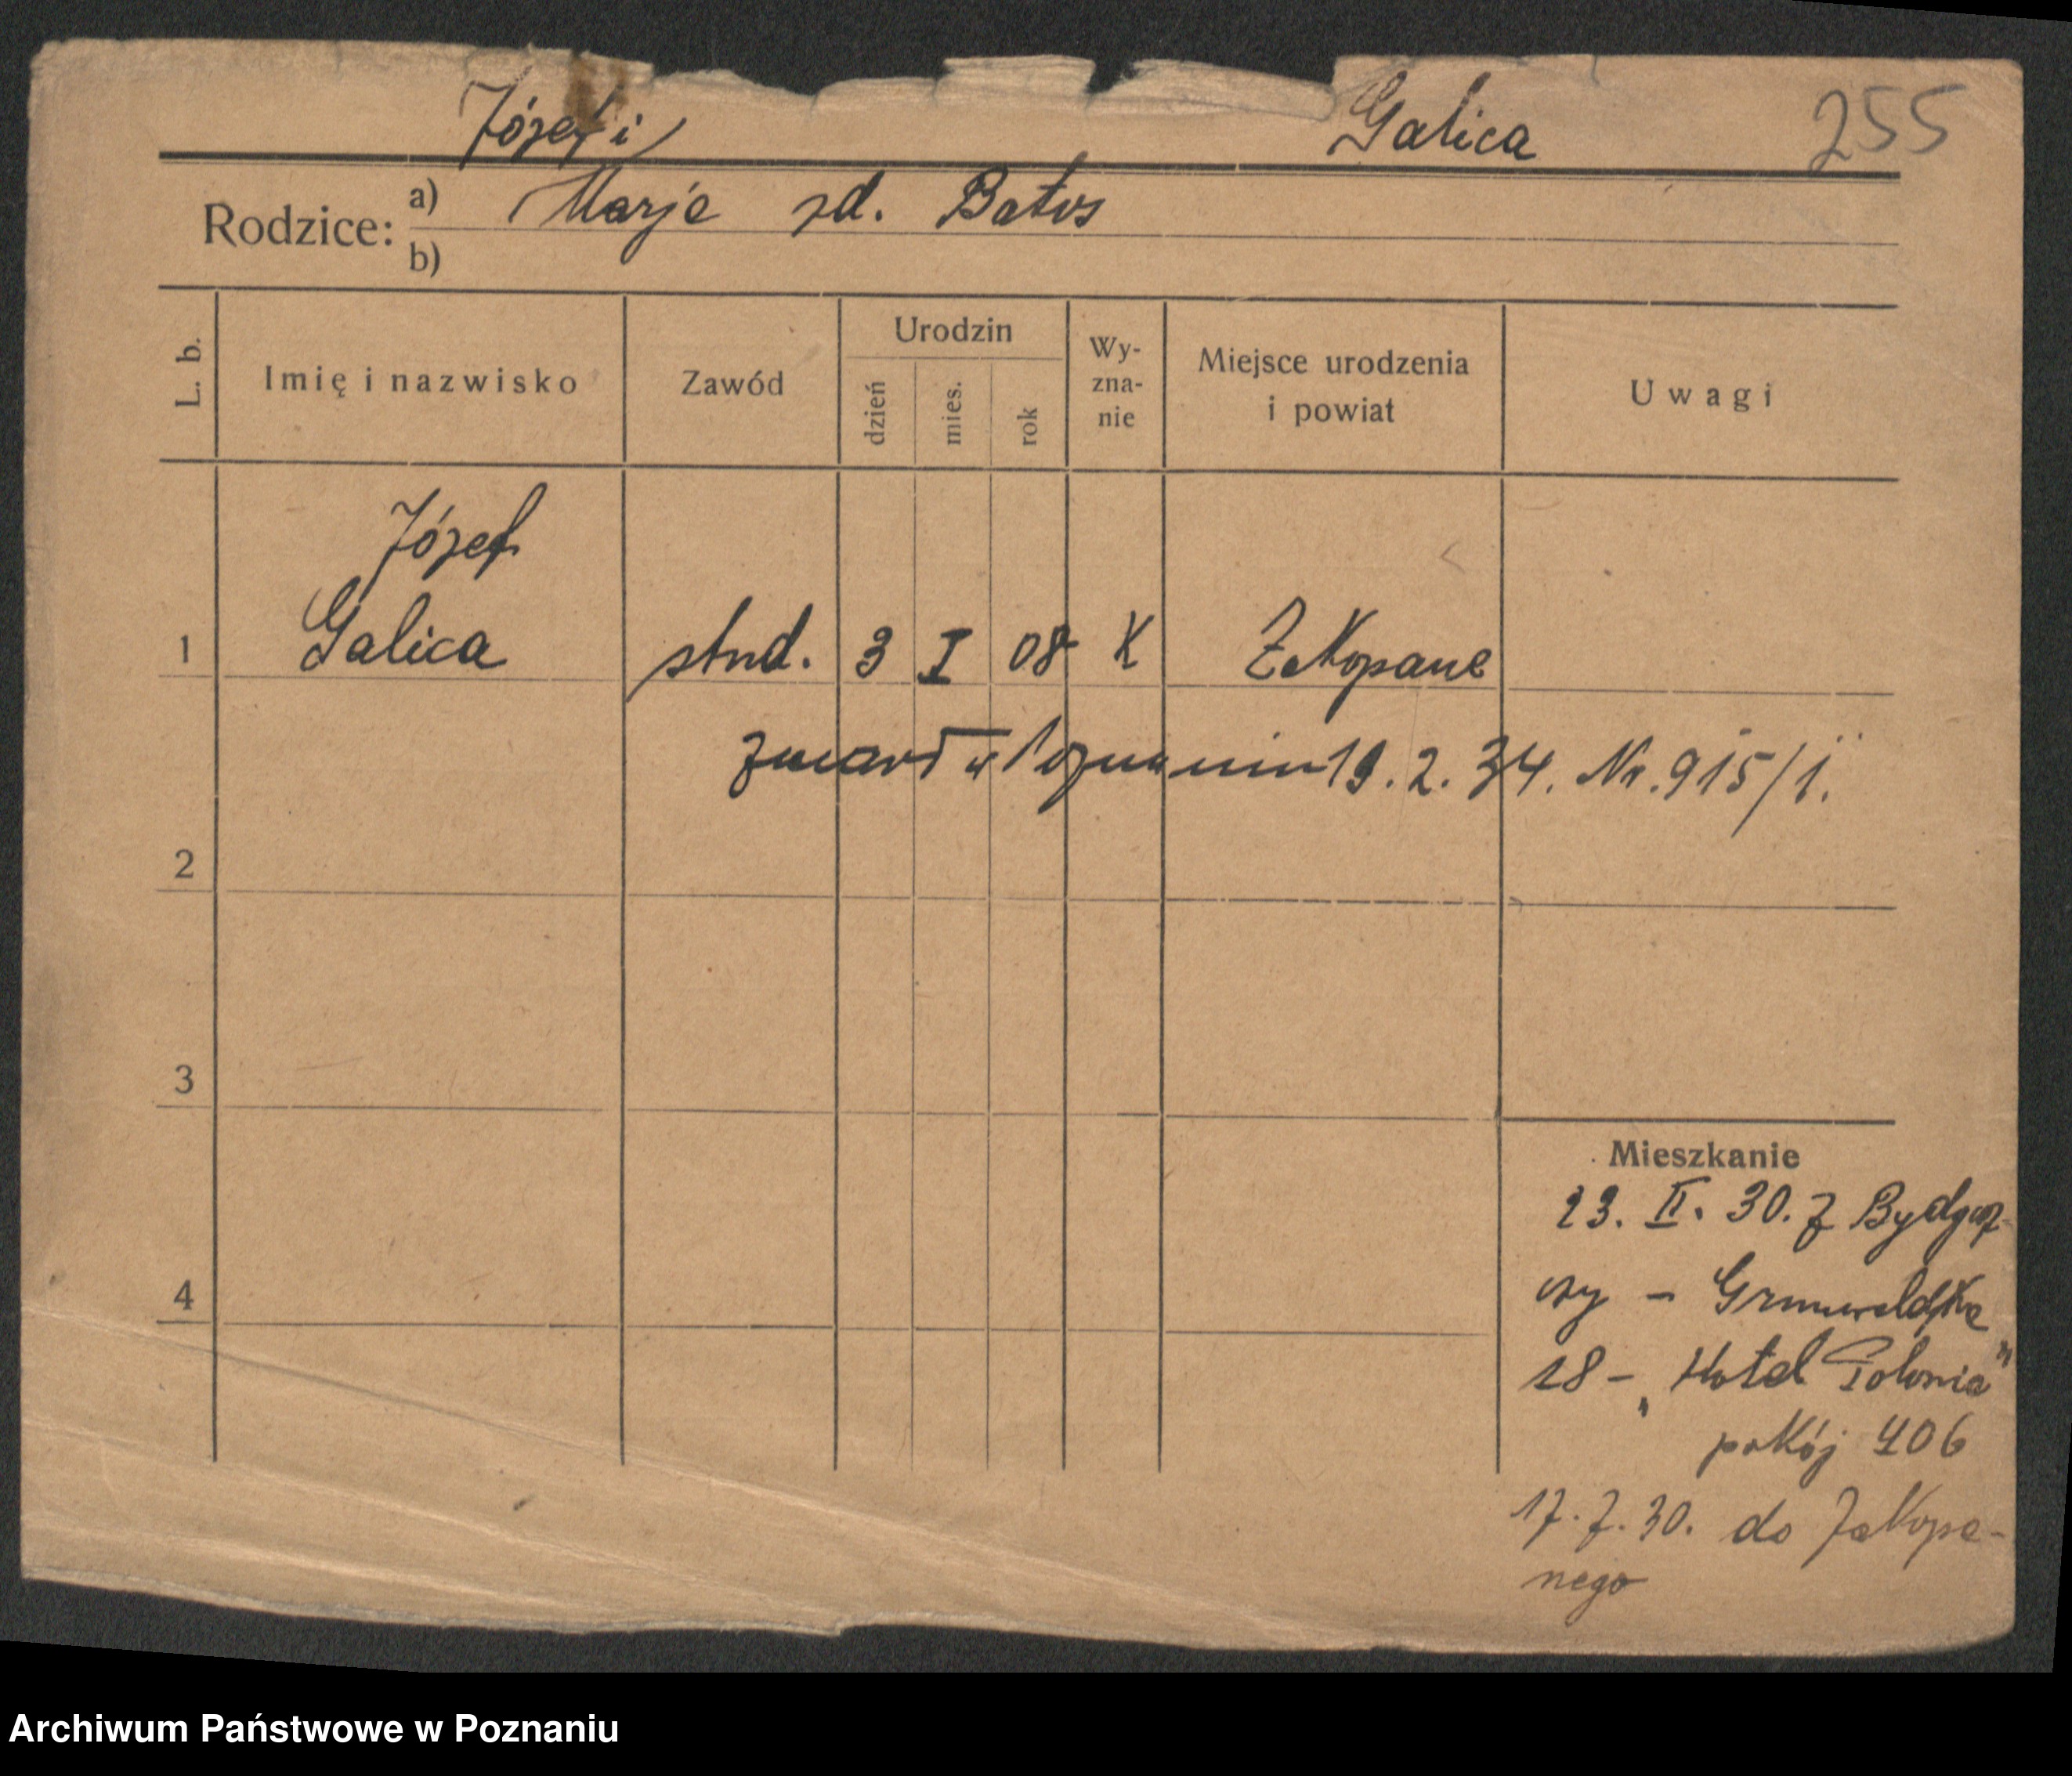 Józef i Galica 255
Rodzice: a) Marja zd. Batus
b)
L. b. Imię i nazwisko Zawód Urodzin dzień mies. rok Wy-zna-nie Miejsce urodzenia i powiat Uwagi
Józef
1 Galica stud. 3 I 08 K Zakopane
zmarł w Poznaniu 19.2.34. Nr. 915/i.
2
3
Mieszkanie
23. II. 30. z Bydgosz-
czy – Grunwaldzka
4
18 – „Hotel Polonia"
pokój 406
17.7.30. do Zakopa-
nego
Archiwum Państwowe w Poznaniu